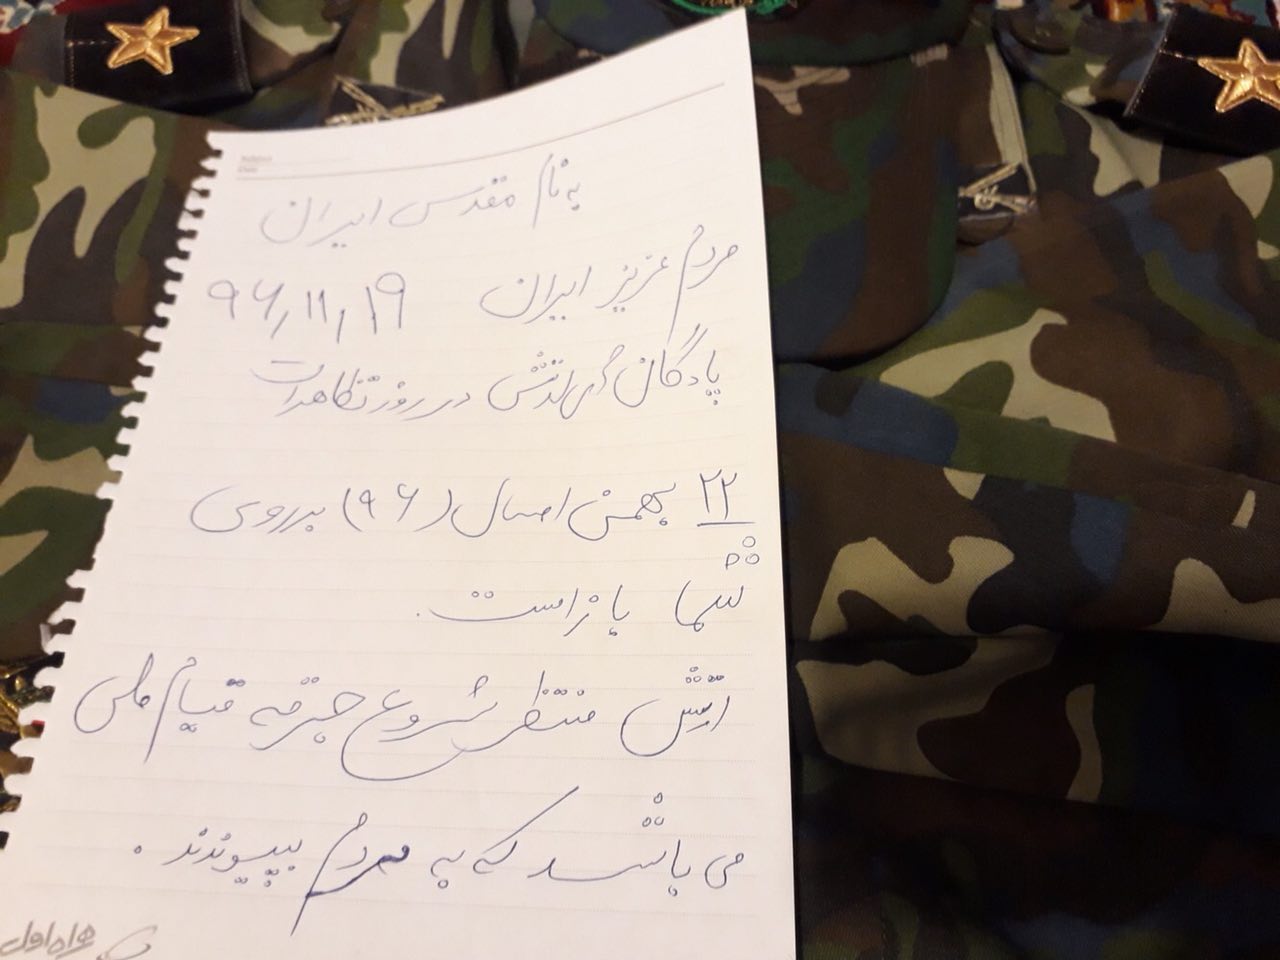 به نام مقدس ایران
مردم عزیز ایران ۹۶/۱۱/۱۹
پادگان های ارتش در روز تظاهرات
۲۲ بهمن امسال (۹۶) بر روی
شما باز است.
ارتش منتظر شروع جرقه قیام ملی
می باشد که به مردم بپیوندند.
همراه اول